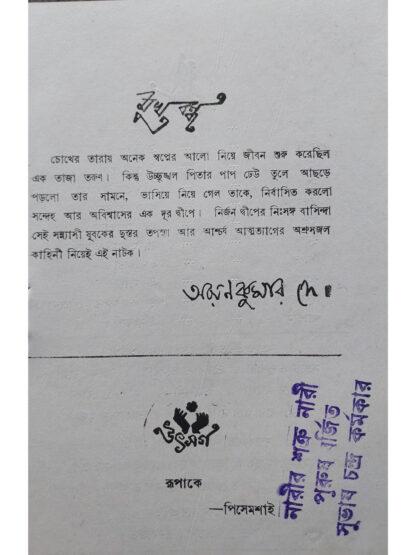 মুখবন্ধ
চোখের তারায় অনেক স্বপ্নের আলো নিয়ে জীবন শুরু করেছিল
এক তাজা তরুণ। কিন্তু উচ্ছৃঙ্খল পিতার পাপ ঢেউ তুলে আছড়ে
পড়লো তার সামনে, ভাসিয়ে নিয়ে গেল তাকে, নির্বাসিত করলো
সন্দেহ আর অবিশ্বাসের এক দূর দ্বীপে। নির্জন দ্বীপের নিঃসঙ্গ বাসিন্দা
সেই সন্ন্যাসী যুবকের দুস্তর তপস্যা আর আশ্চর্য আত্মত্যাগের অশ্রুসজল
কাহিনী নিয়েই এই নাটক।
কুমার দে।
উৎসর্গ
রূপাকে
—পিসেমশাই
নারীর শত্রু নারী
পুরুষ বর্জিত
সুভাষ চন্দ্র কর্মকার